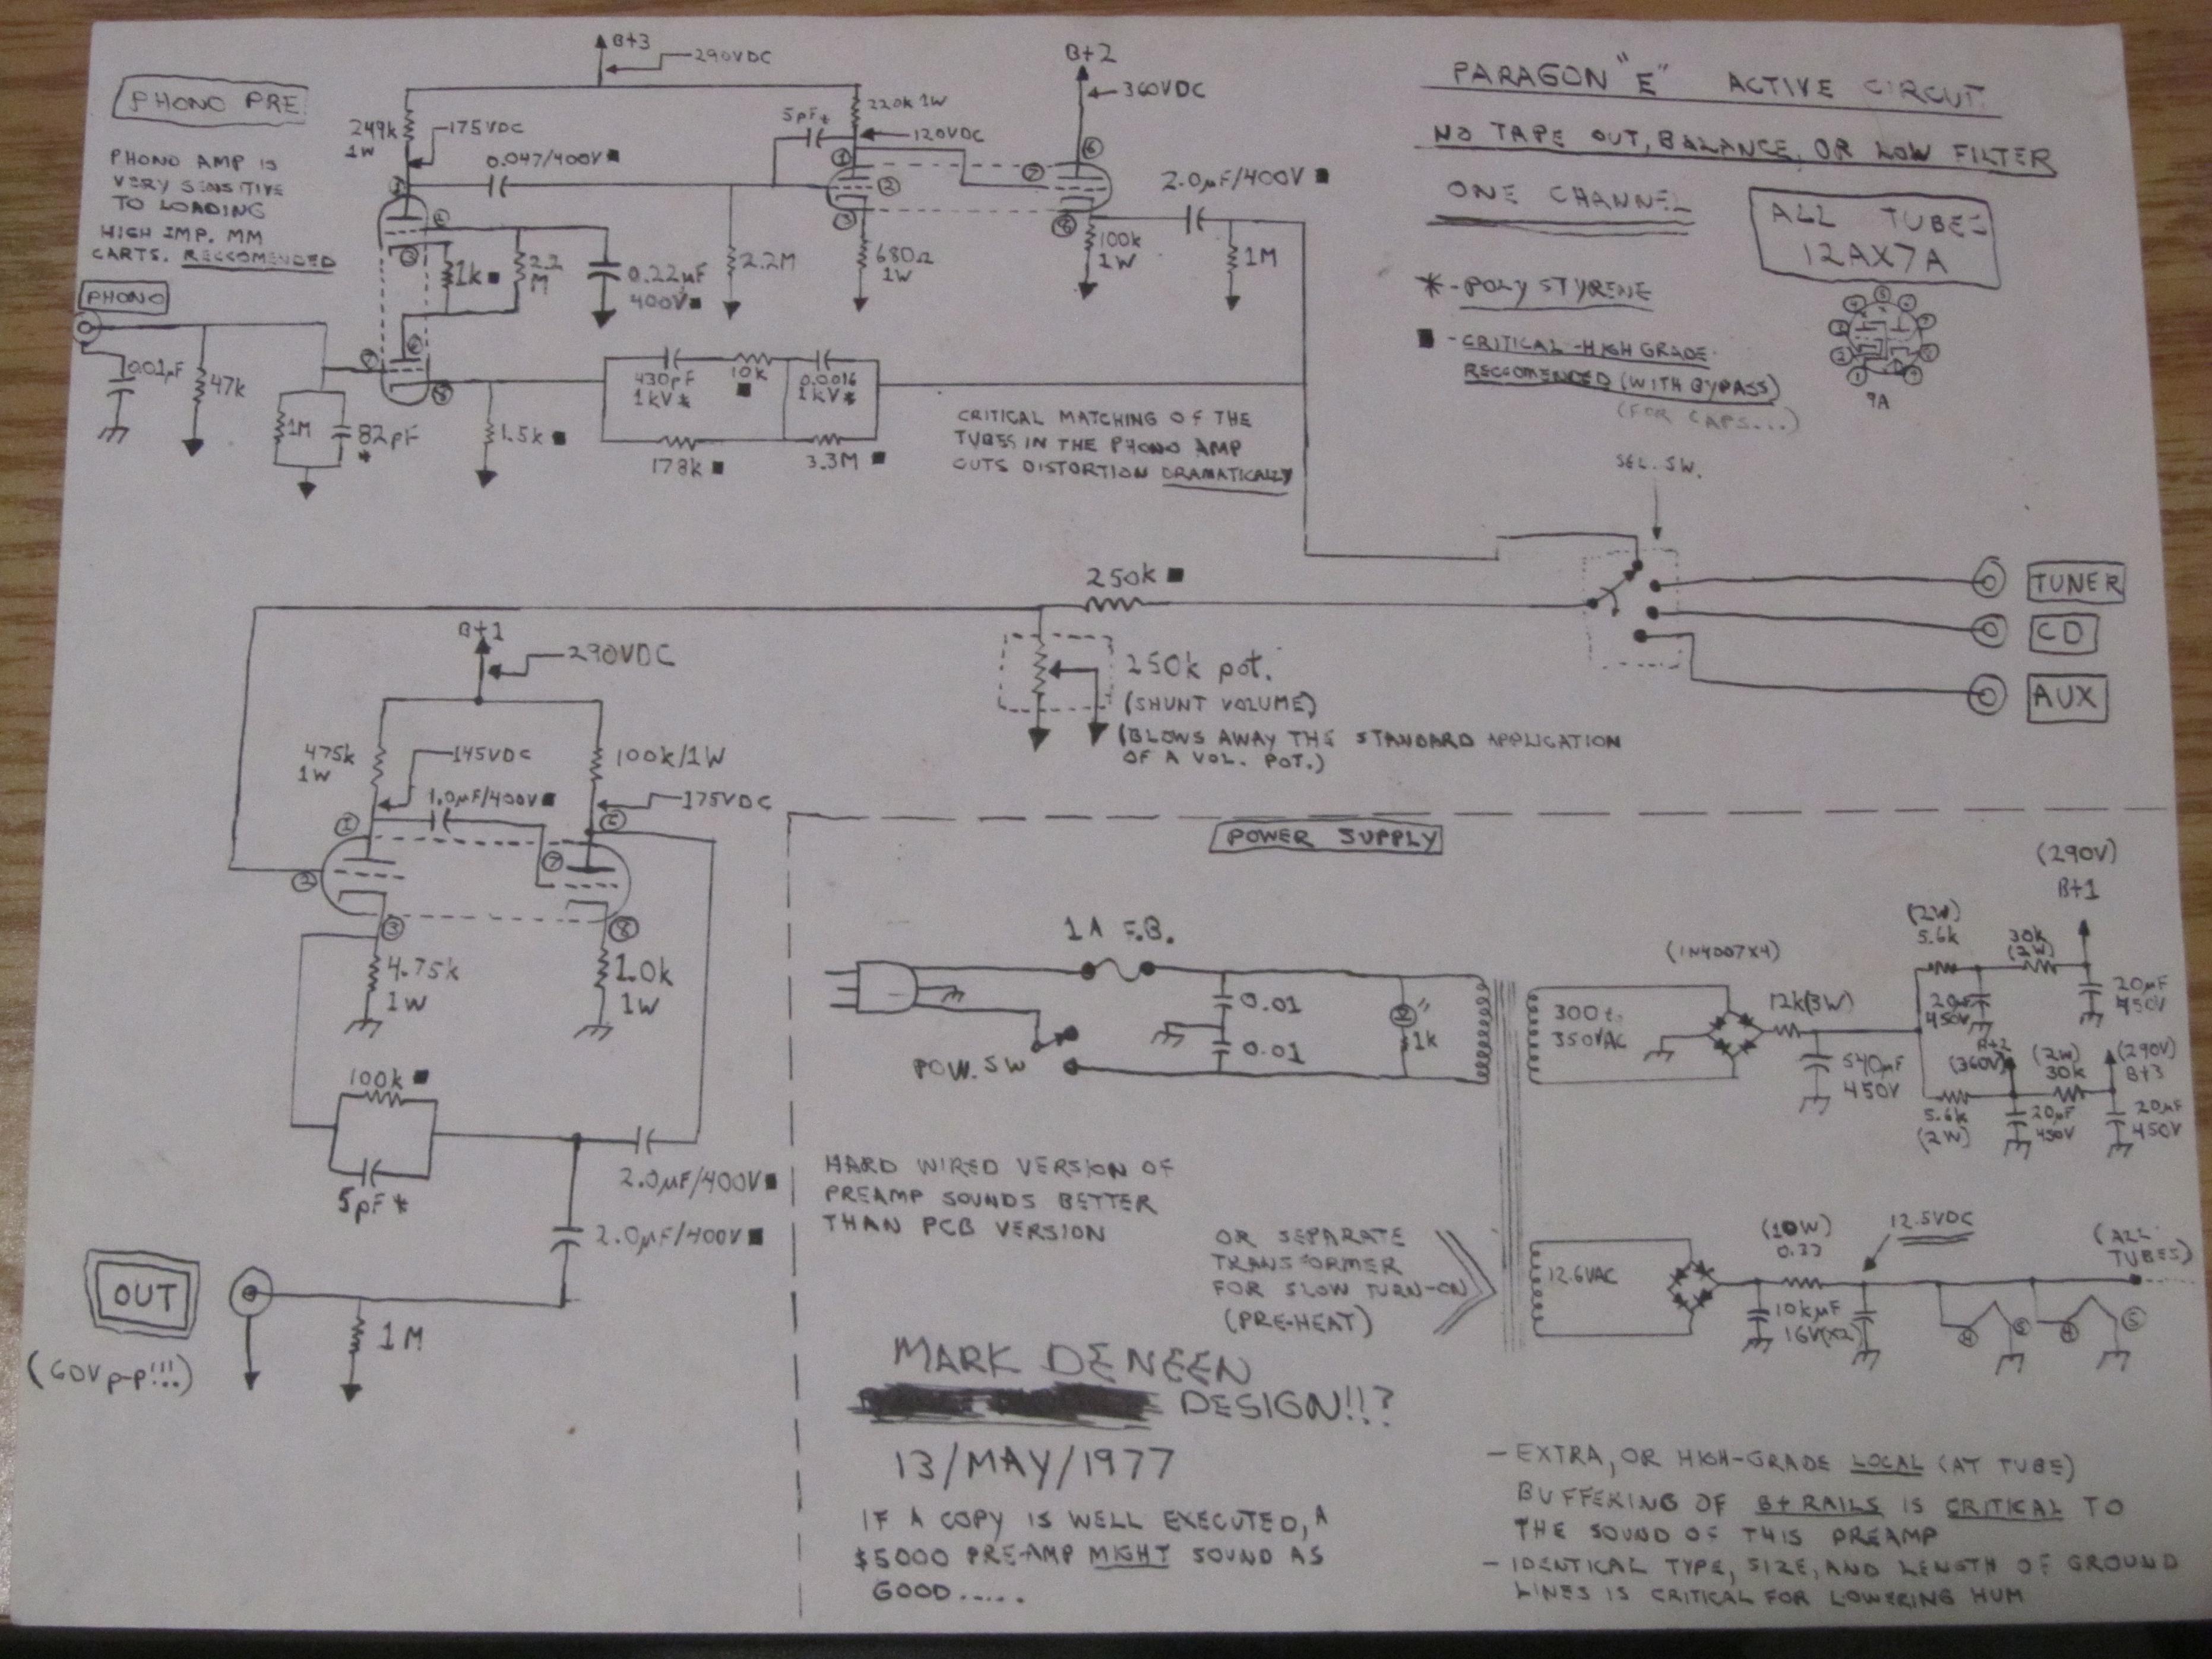 PHONO PRE
PHONO AMP IS
VERY SENSITIVE
TO LOADING
HIGH IMP. MM
CARTS. RECCOMENDED
PHONO
0.01µF
47k
1M
82pF
*
B+3
290VDC
249k
1W
175VDC
0.047/400V■
1
2
3
1k■
2.2
M
0.22µF
400V■
2.2M
6
7
8
1.5k■
5pF*
220k 1W
120VDC
1
2
3
680Ω
1W
B+2
360VDC
6
7
8
100k
1W
2.0µF/400V■
1M
430pF
1kV*
10k
■
0.0016
1kV*
178k■
3.3M■
CRITICAL MATCHING OF THE
TUBES IN THE PHONO AMP
CUTS DISTORTION DRAMATICALLY
PARAGON "E" ACTIVE CIRCUT
NO TAPE OUT, BALANCE, OR LOW FILTER
ONE CHANNEL
ALL TUBES
12AX7A
*-POLY STYRENE
■-CRITICAL-HIGH GRADE
RECCOMENDED (WITH BYPASS)
(FOR CAPS...)
9A
SEL. SW.
TUNER
CD
AUX
250k■
250k pot.
(SHUNT VOLUME)
(BLOWS AWAY THE STANDARD APPLICATION
OF A VOL. POT.)
B+1
290VDC
475k
1W
145VDC
1.0µF/400V■
100k/1W
175VDC
1
2
3
6
7
8
4.75k
1W
1.0k
1W
100k■
5pF*
2.0µF/400V■
2.0µF/400V■
OUT
1M
(60Vp-p!!!)
POWER SUPPLY
1A F.B.
POW. SW
0.01
0.01
1k
300 to
350VAC
(1N4007X4)
12k(3W)
540µF
450V
(2W)
5.6k
20µF
450V
30k
(2W)
(290V)
B+1
20µF
450V
B+2
(360V)
5.6k
(2W)
20µF
450V
(2W)
30k
(290V)
B+3
20µF
450V
HARD WIRED VERSION OF
PREAMP SOUNDS BETTER
THAN PCB VERSION
OR SEPARATE
TRANSFORMER
FOR SLOW TURN-ON
(PRE-HEAT)
12.6VAC
(10W)
12.5VDC
10kµF
16V(X2)
(ALL
TUBES)
4
5
4
5
MARK DENEEN
DESIGN!!?
13/MAY/1977
IF A COPY IS WELL EXECUTED, A
$5000 PRE-AMP MIGHT SOUND AS
GOOD.....
-EXTRA, OR HIGH-GRADE LOCAL (AT TUBE)
BUFFERING OF B+ RAILS IS CRITICAL TO
THE SOUND OF THIS PREAMP
-IDENTICAL TYPE, SIZE, AND LENGTH OF GROUND
LINES IS CRITICAL FOR LOWERING HUM